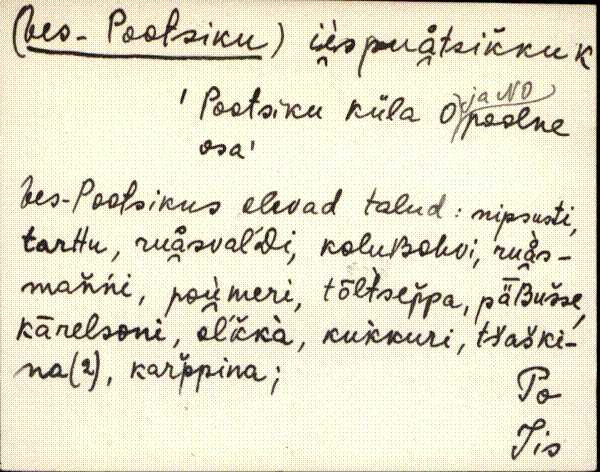 (Ees-Pootsiku) i͔i̬špuåtsik̆kuk
'Pootsiku küla O ja NO poolne
osa'
Ees-Pootsikus olevad talud: nipsusti,
tarttu, ruåsval'Di, koluBohvi, ruås-
mań̆n'i, poi̬meri, tōltsep̆pa, päBuš̆še,
kārelsoni, ol'ik̆kà, kuk̆kuri, tšaški-
na(2), karp̆pina;
Po
Jis